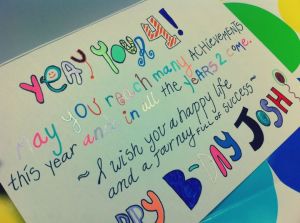 YEAY
May you reach many ACHIEVEMENTS
this year and in all the YEARS 2 come.
~ I wish you a happy life
and a Jorney FULL OF success ~
PPY B-DAY JOSH!